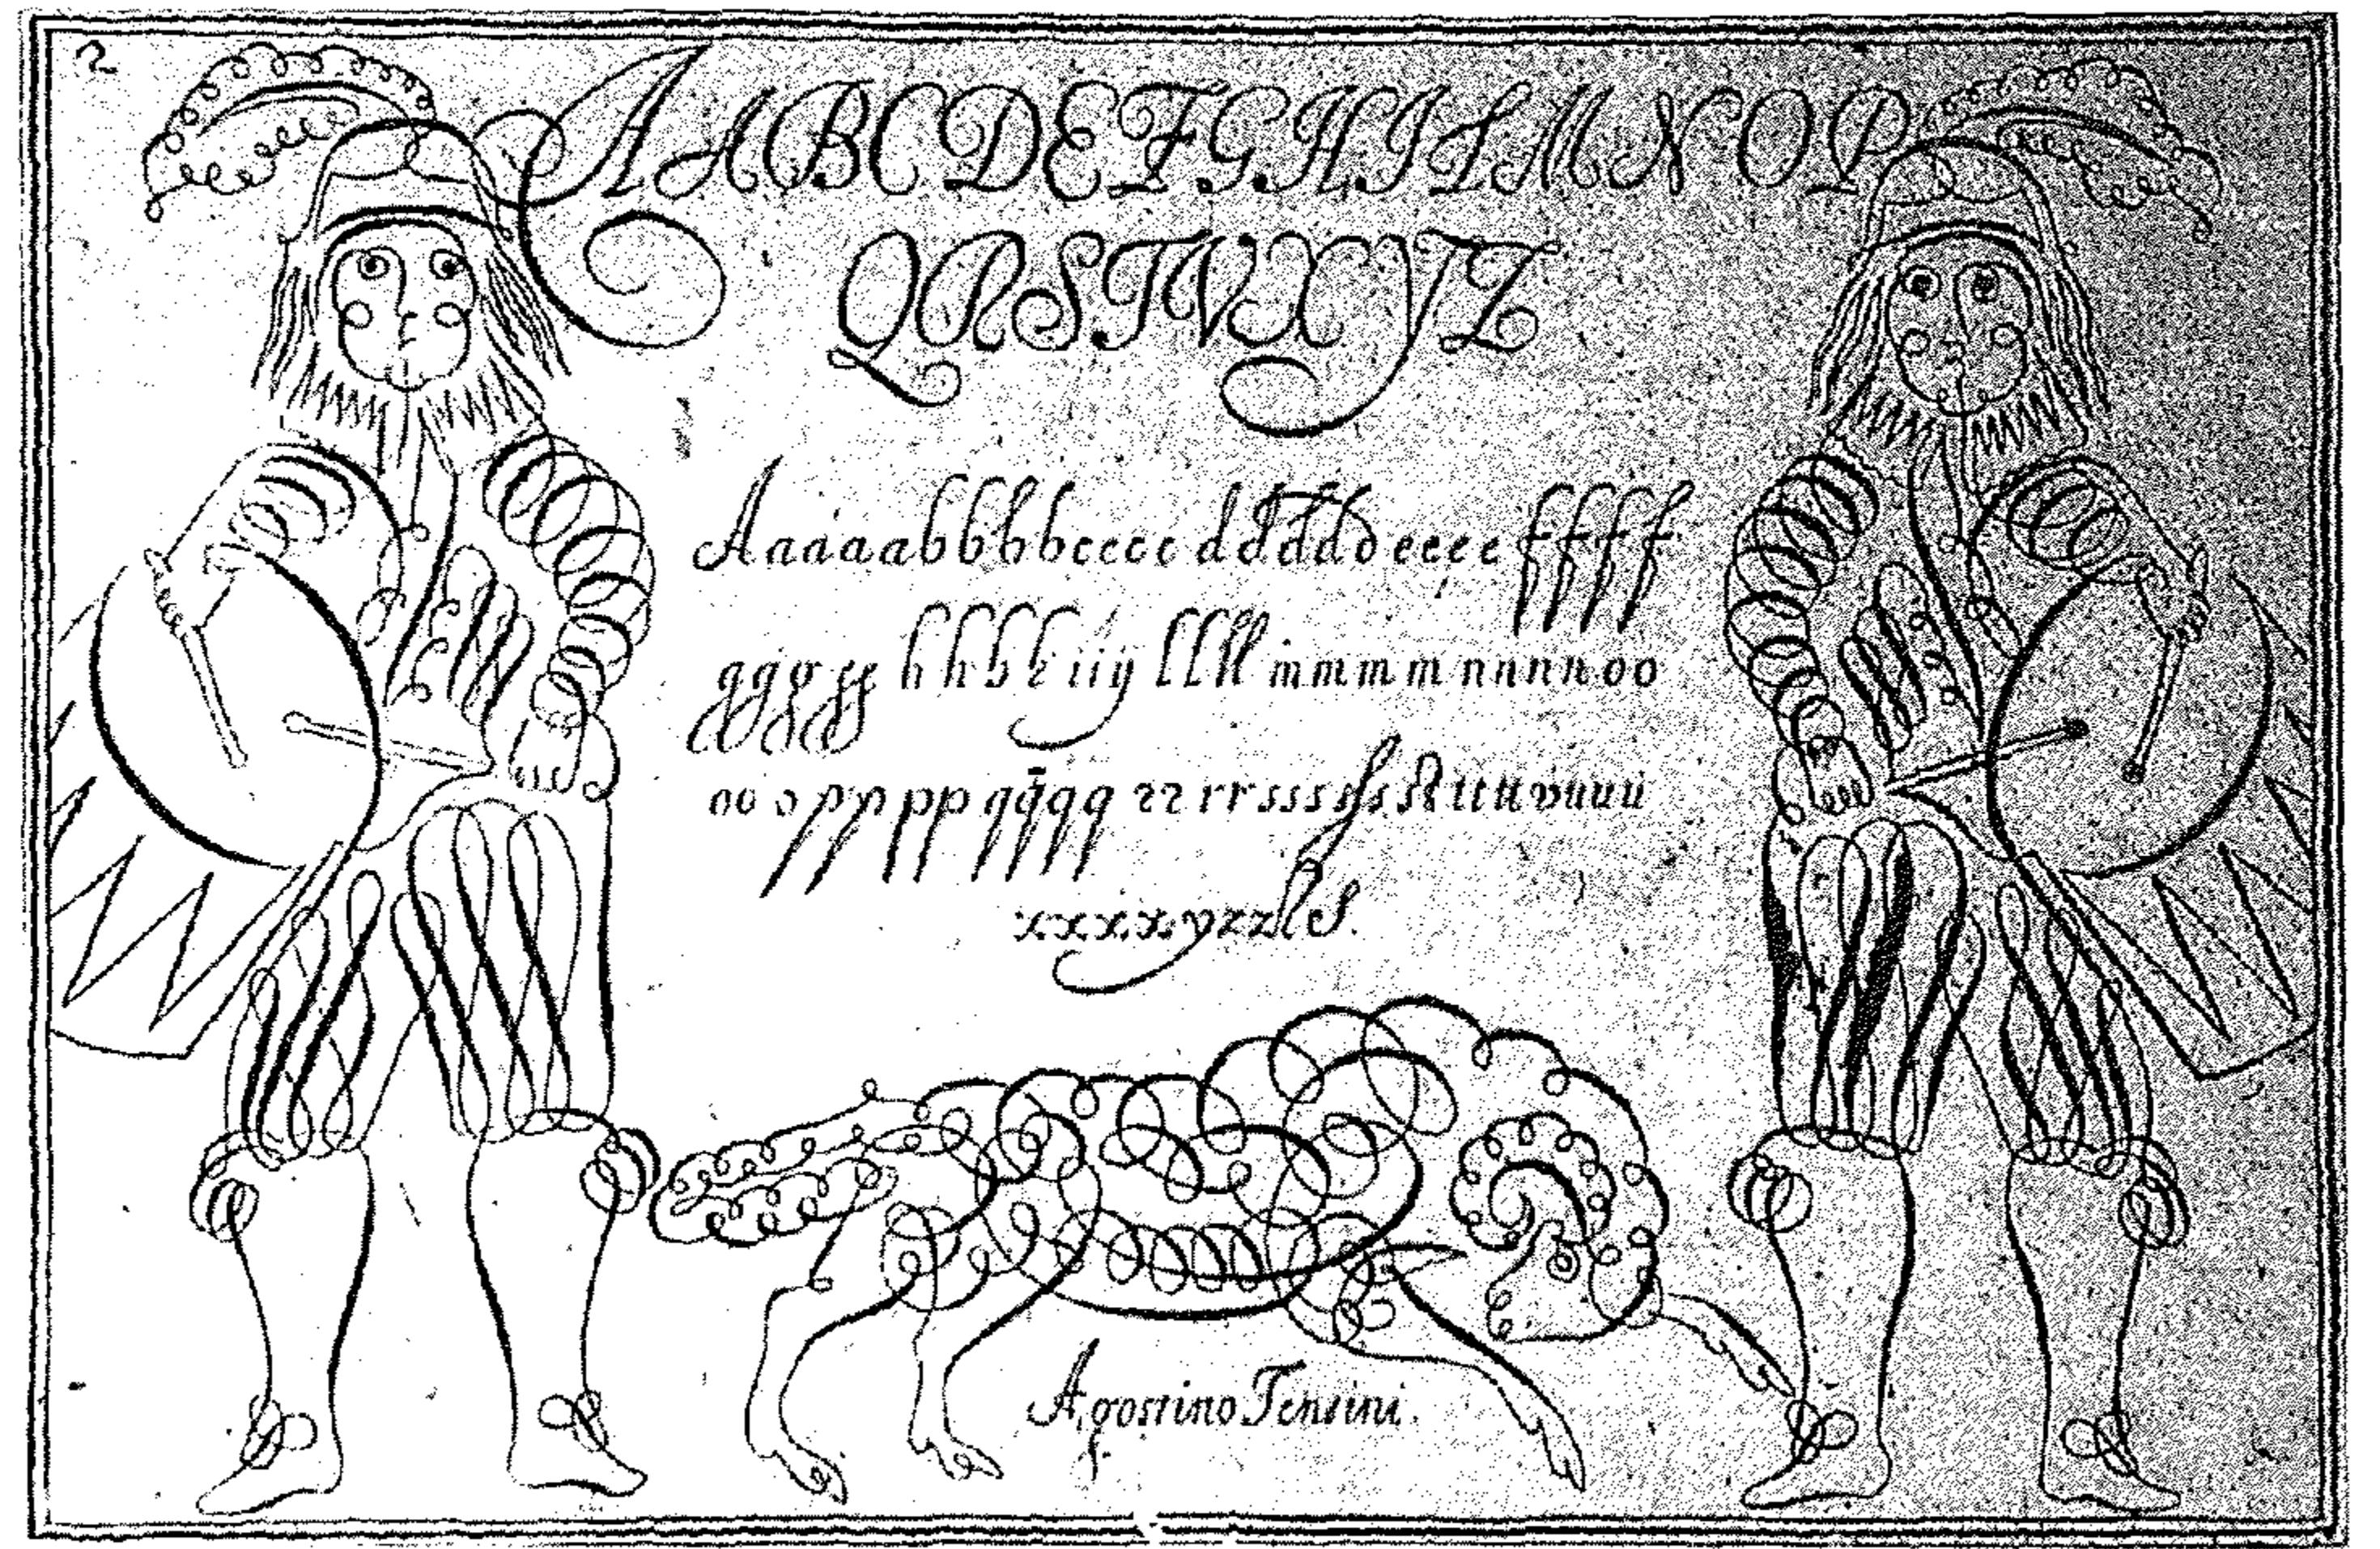 2
AABCDEFGHILMNOP
QRSTVXYZ
Aaaaaabbbbcccc dddddd eeee ffff
gggg hhhh iiy llll mmmm nnnnoo
oo o pppp qqqq rr rr ssssssss tttt vuuu
xxxx yzz
Agostino Tensini
f.